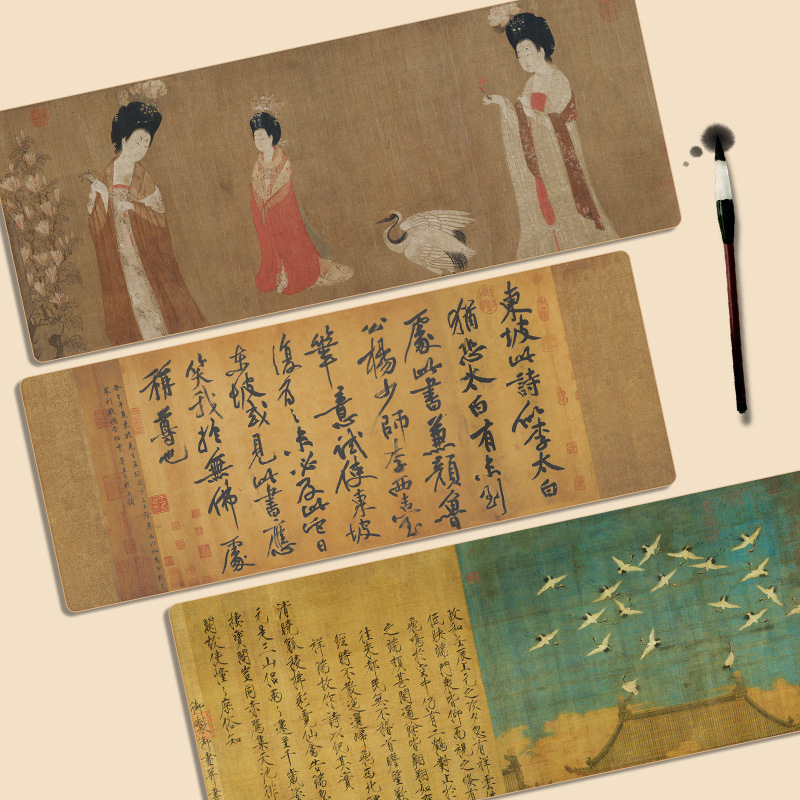 東坡此詩似李太白
猶恐太白有未到
處此書兼顏魯
公楊少師李西臺
筆意試使東坡
復為之未必及此它日
東坡或見此書應
笑我於無佛處
稱尊也
政和壬辰上元之次夕忽有祥雲
低映端門眾皆仰而視之倏有
飛鳴於空中仍有二鶴對止於
之端頗甚閒適餘皆翱翔如應
往來都民無不稽首瞻望歎
經時不散迤邐歸飛西北隅
祥瑞故作詩以紀其實
清曉觚稜拂彩霓仙禽告瑞忽
元是三山侶兩兩還呈千歲姿
棲寶閣豈同赤雁集天池徘
闕故使憧憧庶俗知
御製御畫并書